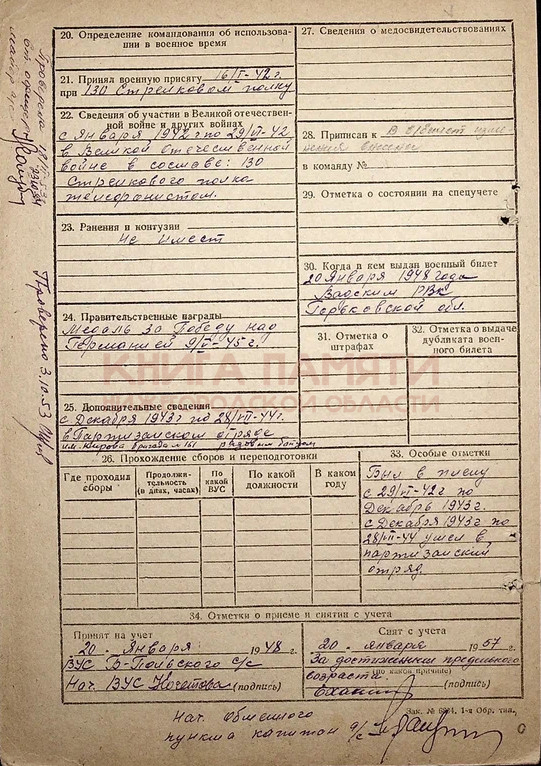 20. Определение командования об использова-
нии в военное время
21. Принял военную присягу 16/I-42 г.
при 130 Стрелковом полку
22. Сведения об участии в Великой отечествен-
ной войне и других войнах
с Января 1942 г по 29/VI-42
в Великой отечественной
войне в составе: 130
Стрелкового полка
телефонистом.
23. Ранения и контузии
Не имеет
24. Правительственные награды
Медаль за Победу над
Германией 9/V-45 г.
25. Дополнительные сведения
с Декабря 1943 г по 28/VII-44 г.
в Партизанском отряде
им. Кирова бригады № 161 рядовым бойцом
27. Сведения о медосвидетельствованиях
28. Приписан к
в команду №
29. Отметка о состоянии на спецучете
30. Когда и кем выдан военный билет
20 Января 1948 года
Вадским РВК
Горьковской обл.
31. Отметка о
штрафах
32. Отметка о выдаче
дубликата воен-
ного билета
26. Прохождение сборов и переподготовки
Где проходил
сборы
Продолжи-
тельность
(в днях, часах)
По
какой
ВУС
По какой
должности
В каком
году
33. Особые отметки
Был в плену
с 29/VI-42 г по
Декабрь 1943 г.
с Декабря 1943 г по
28/VII-44 ушел в
партизанский
отряд.
34. Отметки о приеме и снятии с учета
Принят на учет
20 Января 1948 г.
ВУС Б-Польского С/С
Нач. ВУС Кочетова (подпись)
Снят с учета
20 января 1957 г.
За достижением предельного
(по какой причине)
возраста.
(подпись)
Зак. № 1-я Обр. тип.
Нач. Обменного
пункта капитан а/с
Проверено 3.10-53
КНИГА ПАМЯТИ
НИЖЕГОРОДСКОЙ ОБЛАСТИ